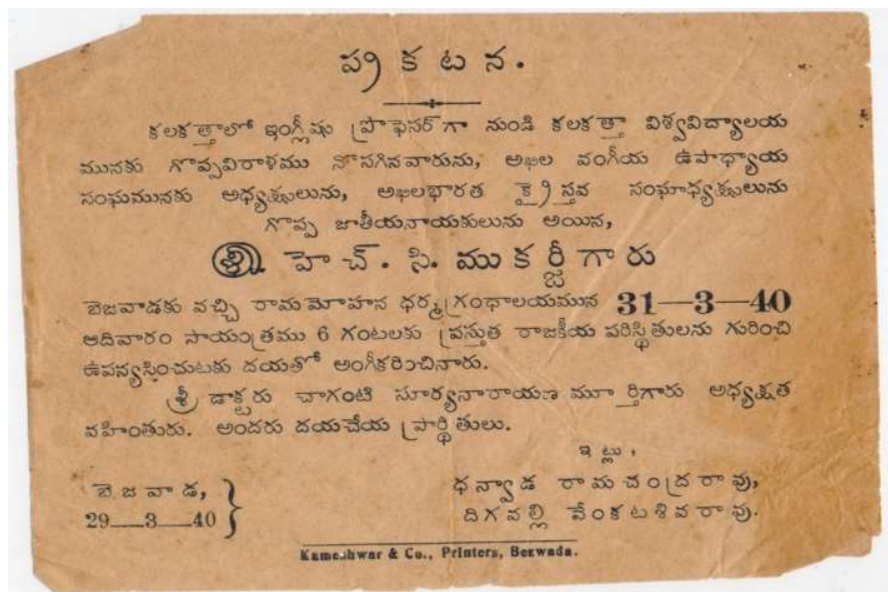 ప్రకటన.
కలకత్తాలో ఇంగ్లీషు ప్రొఫెసర్‌గా నుండి కలకత్తా విశ్వవిద్యాలయ
మునకు గొప్పవిరాళము నొసగినవారును, అఖిల వంగీయ ఉపాధ్యాయ
సంఘమునకు అధ్యక్షులును, అఖిలభారత క్రైస్తవ సంఘాధ్యక్షులును
గొప్ప జాతీయనాయకులును అయిన,
శ్రీ హెచ్. సి. ముకర్జీగారు
బెజవాడకు వచ్చి రామమోహన ధర్మగ్రంథాలయమున 31—3—40
ఆదివారం సాయంత్రము 6 గంటలకు ప్రస్తుత రాజకీయ పరిస్థితులను గురించి
ఉపన్యసించుటకు దయతో అంగీకరించినారు.
శ్రీ డాక్టరు చాగంటి సూర్యనారాయణ మూర్తిగారు అధ్యక్షత
వహింతురు. అందరు దయచేయ ప్రార్థితులు.
ఇట్లు,
బెజవాడ,
29—3—40
ధన్వాడ రామచంద్రరావు,
దిగవల్లి వేంకటశివరావు.
Kameshwar & Co., Printers, Bezwada.